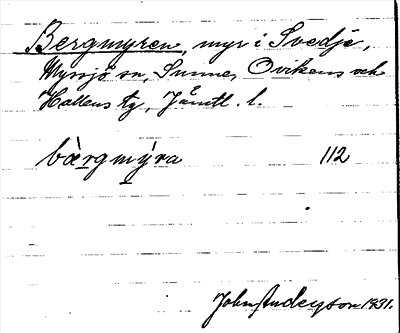 Bergmyren, myr i Svedje,
Myssjö sn, Sunne, Ovikens och
Hallens tg, Jämtl. l.
bàrgmýra 112
John Anderson 1931.